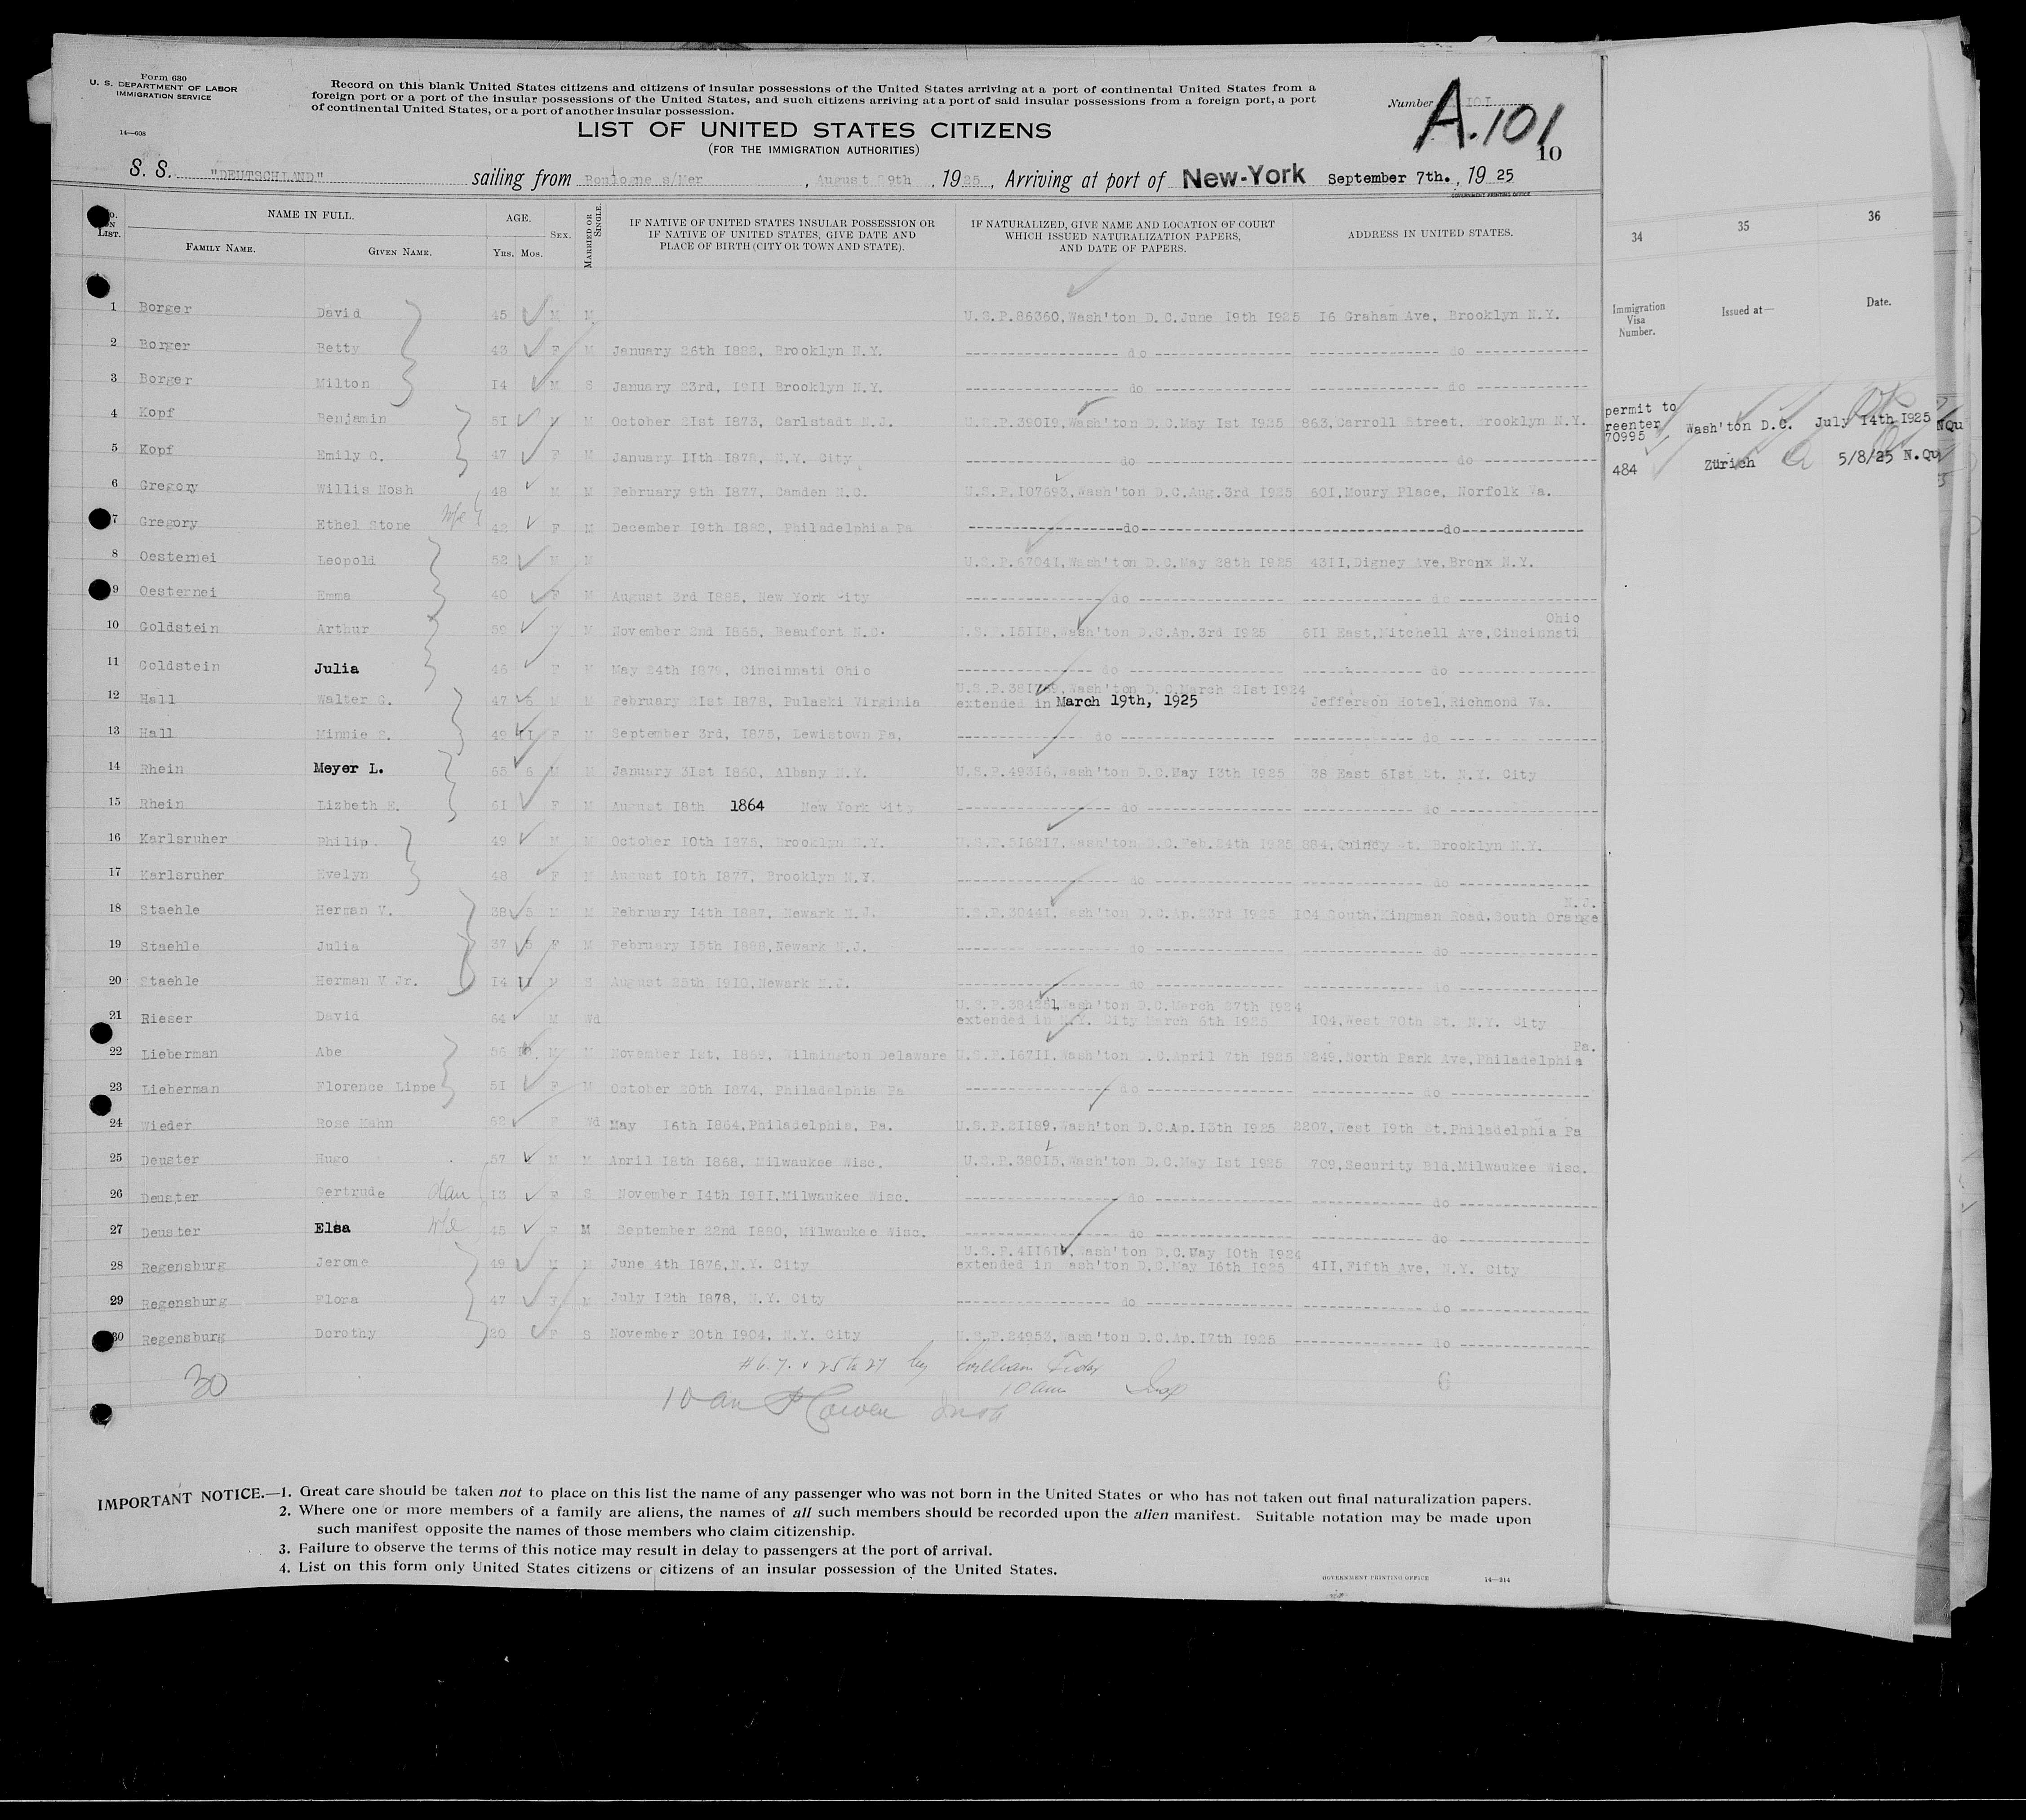 Form 630
U. S. DEPARTMENT OF LABOR
IMMIGRATION SERVICE
14—608
Record on this blank United States citizens and citizens of insular possessions of the United States arriving at a port of continental United States from a
foreign port or a port of the insular possessions of the United States, and such citizens arriving at a port of said insular possessions from a foreign port, a port
of continental United States, or a port of another insular possession.
Number A.101
10
LIST OF UNITED STATES CITIZENS
(FOR THE IMMIGRATION AUTHORITIES)
S. S. "DEUTSCHLAND" sailing from Boulogne s/Mer, August 29th, 1925, Arriving at port of New-York September 7th., 1925
GOVERNMENT PRINTING OFFICE
No. ON LIST. NAME IN FULL. FAMILY NAME. GIVEN NAME. AGE. YRS. MOS. SEX. MARRIED OR SINGLE. IF NATIVE OF UNITED STATES INSULAR POSSESSION OR IF NATIVE OF UNITED STATES, GIVE DATE AND PLACE OF BIRTH (CITY OR TOWN AND STATE). IF NATURALIZED, GIVE NAME AND LOCATION OF COURT WHICH ISSUED NATURALIZATION PAPERS, AND DATE OF PAPERS. ADDRESS IN UNITED STATES.
1 Borger David 45 M M U.S.P.86360,Wash'ton D.C.June 19th 1925 16 Graham Ave, Brooklyn N.Y.
2 Borger Betty 43 F M January 26th 1882, Brooklyn N.Y. do do
3 Borger Milton 14 M S January 23rd, 1911 Brooklyn N.Y. do do
4 Kopf Benjamin 51 M M October 21st 1873, Carlstadt N.J. U.S.P.39019,Wash'ton D.C.May 1st 1925 863,Carroll Street, Brooklyn N.Y.
5 Kopf Emily C. 47 F M January 11th 1878, N.Y. City do do
6 Gregory Willis Nosh 48 M M February 9th 1877, Camden N.C. U.S.P.107693,Wash'ton D.C.Aug.3rd 1925 601,Moury Place, Norfolk Va.
7 Gregory Ethel Stone wife 42 F M December 19th 1882, Philadelphia Pa do do
8 Oesternei Leopold 52 M M U.S.P.67041,Wash'ton D.C.May 28th 1925 4311,Digney Ave,Bronx N.Y.
9 Oesternei Emma 40 F M August 3rd 1885, New York City do do
10 Goldstein Arthur 59 M M November 2nd 1865, Beaufort N.C. U.S.P.15118,Wash'ton D.C.Ap.3rd 1925 611 East,Mitchell Ave,Cincinnati Ohio
11 Goldstein Julia 46 F M May 24th 1879, Cincinnati Ohio do do
12 Hall Walter G. 47 6 M M February 21st 1878, Pulaski Virginia U.S.P.381769,Wash'ton D.C.March 21st 1924
extended in March 19th, 1925 Jefferson Hotel,Richmond Va.
13 Hall Minnie S. 49 11 F M September 3rd, 1875, Lewistown Pa. do do
14 Rhein Meyer L. 65 6 M M January 31st 1860, Albany N.Y. U.S.P.49316,Wash'ton D.C.May 13th 1925 38 East 61st St. N.Y. City
15 Rhein Lizbeth E. 61 F M August 18th 1864 New York City do do
16 Karlsruher Philip. 49 M M October 10th 1875, Brooklyn N.Y. U.S.P.516217,Wash'ton D.C.Feb.24th 1925 884,Quindy St. Brooklyn N.Y.
17 Karlsruher Evelyn 48 F M August 10th 1877, Brooklyn N.Y. do do
18 Staehle Herman V. 38 5 M M February 14th 1887, Newark N.J. U.S.P.30441,Wash'ton D.C.Ap.23rd 1925 104 South,Kingman Road,South Orange N.J.
19 Staehle Julia 37 5 F M February 15th 1888,Newark N.J. do do
20 Staehle Herman V Jr. 14 11 M S August 25th 1910,Newark N.J. do do
21 Rieser David 64 M Wd U.S.P.384251,Wash'ton D.C.March 27th 1924
extended in N.Y. City March 6th 1925 104,West 70th St. N.Y. City
22 Lieberman Abe 56 10. M M November 1st, 1869, Wilmington Delaware U.S.P.16711,Wash'ton D.C.April 7th 1925 2249,North Park Ave,Philadelphia Pa.
23 Lieberman Florence Lippe 51 F M October 20th 1874, Philadelphia Pa do do
24 Wieder Rose Kahn 62 F Wd May 16th 1864,Philadelphia, Pa. U.S.P.21189,Wash'ton D.C.Ap.13th 1925 2207,West 19th St.Philadelphia Pa
25 Deuster Hugo 57 M M April 18th 1868, Milwaukee Wisc. U.S.P.38015,Wash'ton D.C.May 1st 1925 709,Security Bld.Milwaukee Wisc.
26 Deuster Gertrude dau 13 F S November 14th 1911,Milwaukee Wisc. do do
27 Deuster Elsa wfe 45 F M September 22nd 1880, Milwaukee Wisc. do do
28 Regensburg Jerome 49 M M June 4th 1876,N.Y. City U.S.P.41161,Wash'ton D.C.May 10th 1924
extended in Wash'ton D.C.May 16th 1925 411,Fifth Ave, N.Y. City
29 Regensburg Flora 47 F M July 12th 1878, N.Y. City do do
30 Regensburg Dorothy 20 F S November 20th 1904, N.Y. City U.S.P.24953,Wash'ton D.C.Ap.17th 1925 do
30 #6.7. & 25 to 27 by William 6
10 am Insp
10 am Cowen Insp
34 35 36
Immigration Visa Number. Issued at— Date.
permit to reenter 70995 Wash'ton D.C. July 14th 1925 NQu
484 Zürich 5/8/25 N.Qu
IMPORTANT NOTICE.—1. Great care should be taken not to place on this list the name of any passenger who was not born in the United States or who has not taken out final naturalization papers.
2. Where one or more members of a family are aliens, the names of all such members should be recorded upon the alien manifest. Suitable notation may be made upon
such manifest opposite the names of those members who claim citizenship.
3. Failure to observe the terms of this notice may result in delay to passengers at the port of arrival.
4. List on this form only United States citizens or citizens of an insular possession of the United States.
GOVERNMENT PRINTING OFFICE 14—314